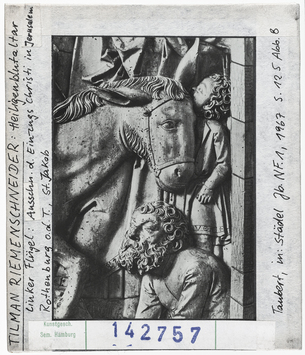 TILMAN RIEMENSCHNEIDER: Heiligenblutaltar
Linker Flügel: Ausschn. d. Einzugs Christi in Jerusalem
Rothenburg o.d.T., St. Jakob
Taubert, in: Städel Jb. NF. 1, 1967 S. 125 Abb. 8
Kunstgesch.
Sem. Hamburg
142757